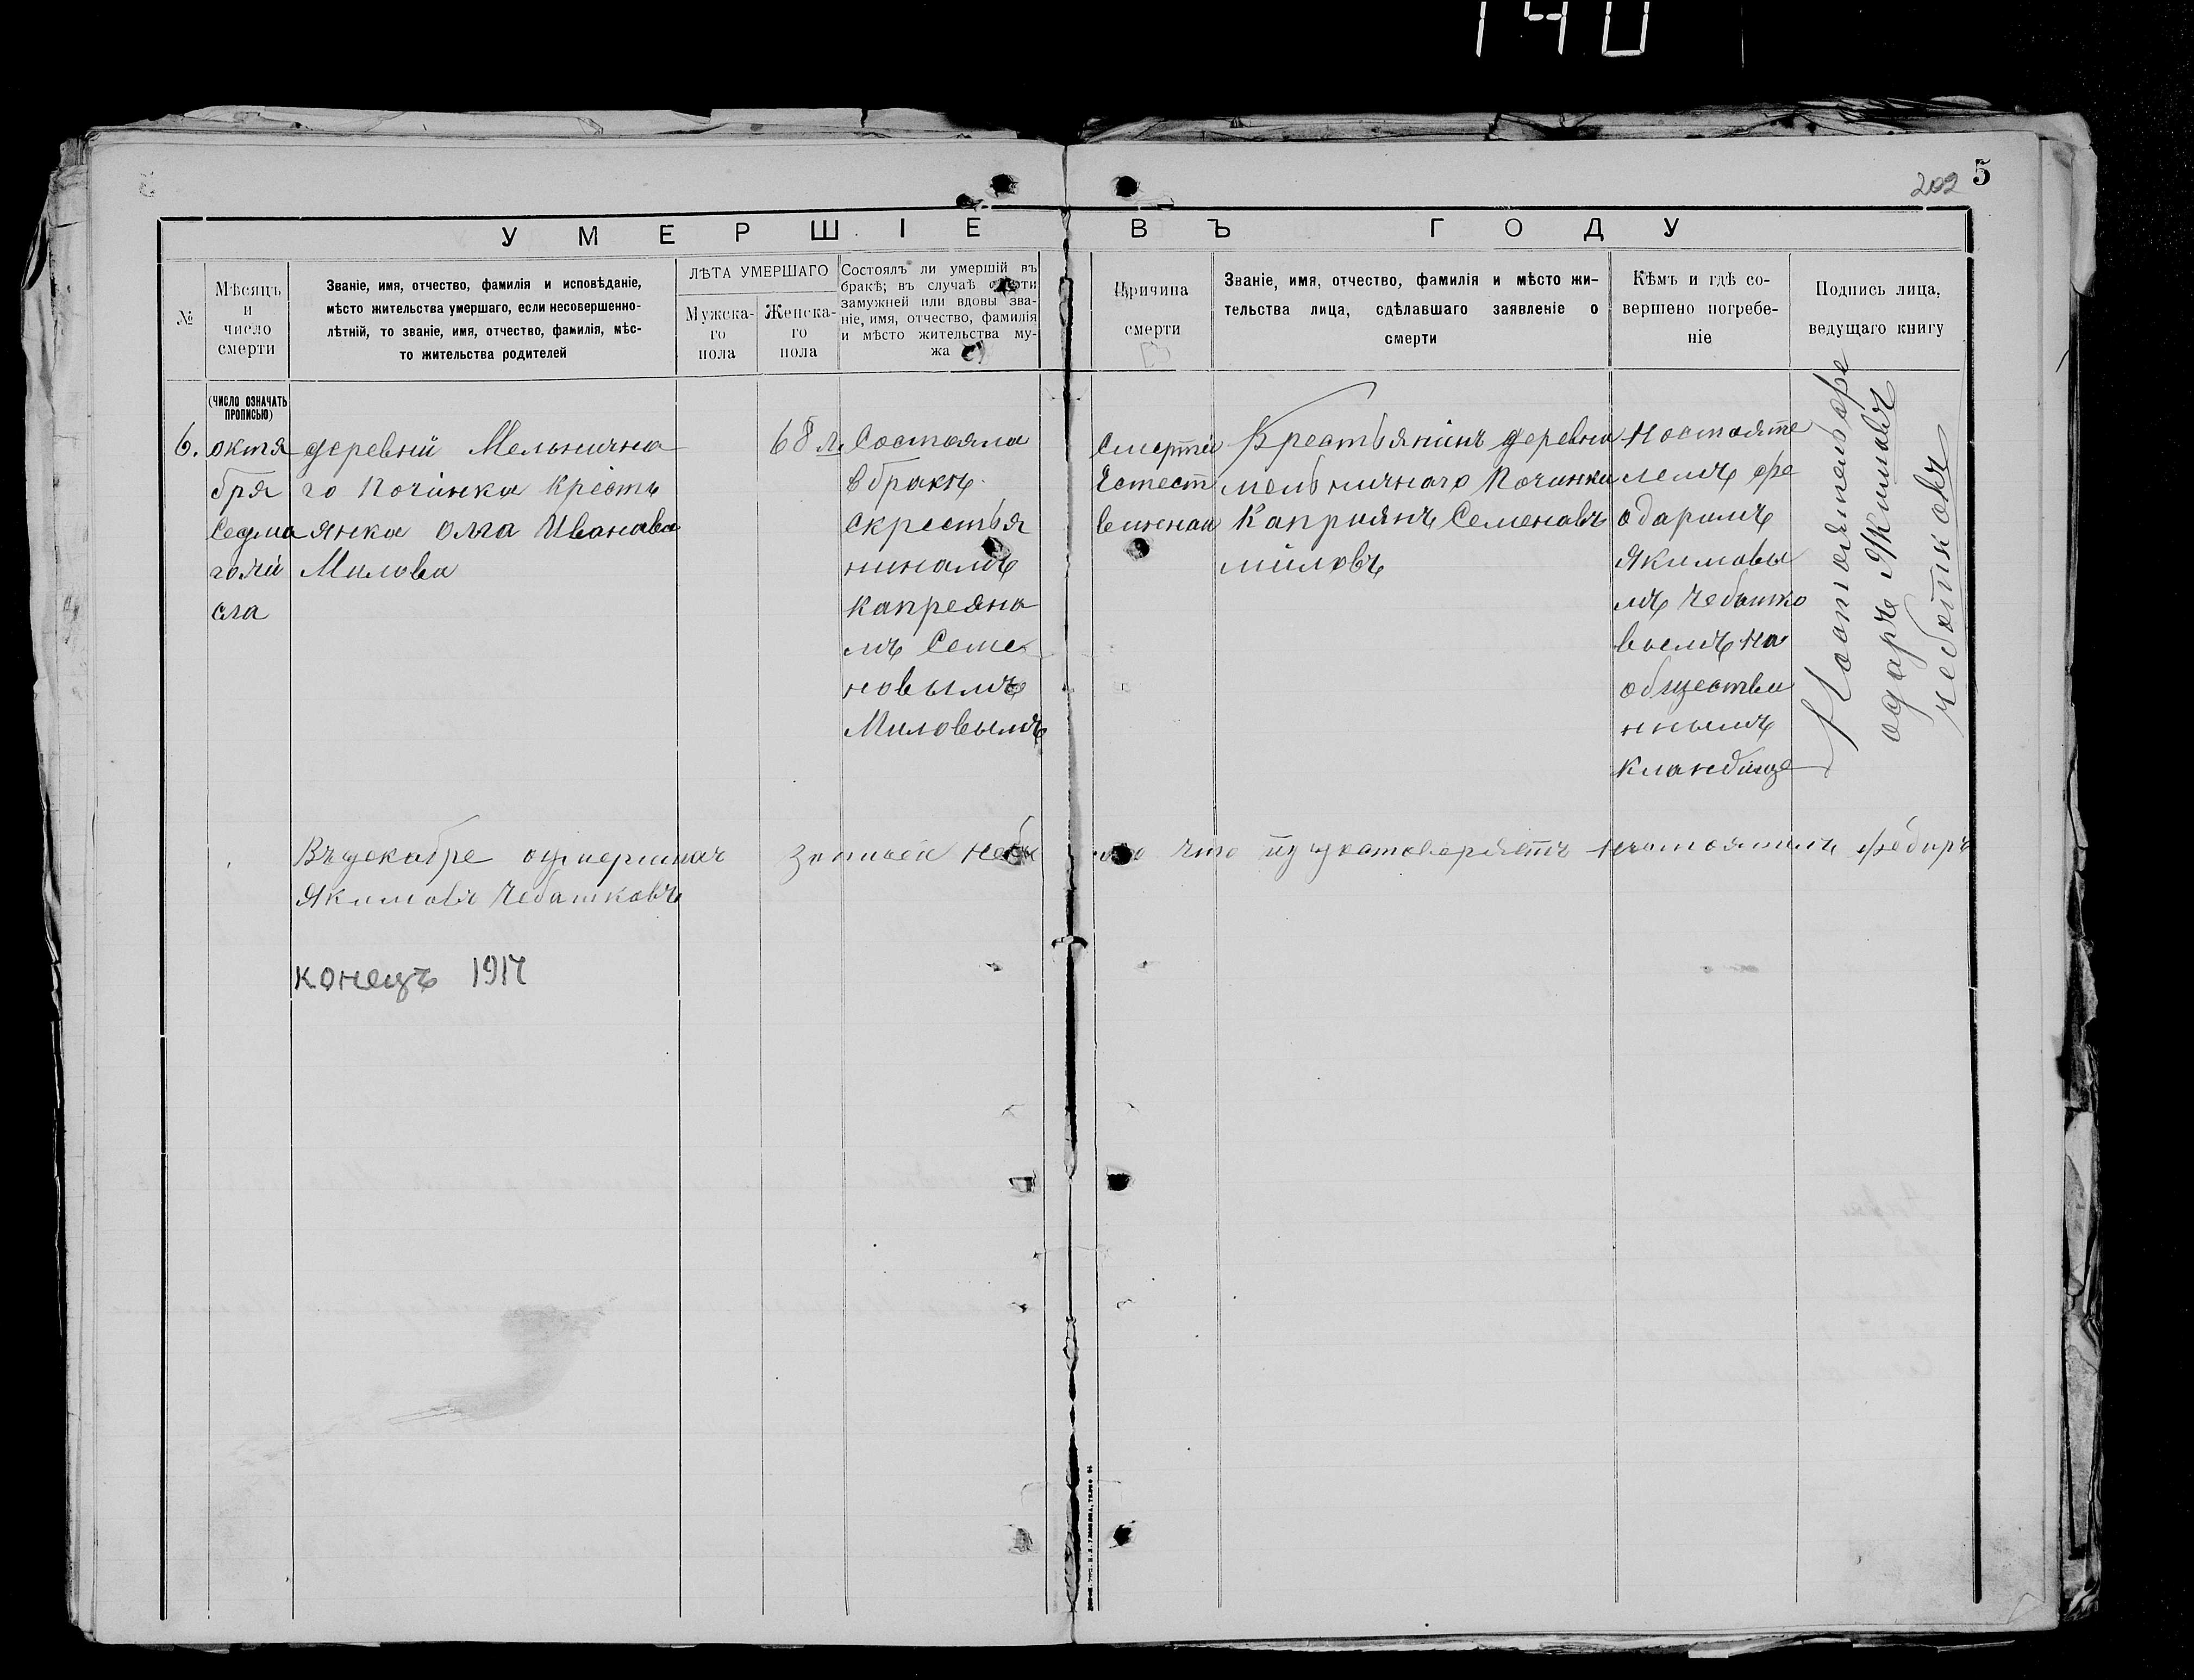 140
202 5
УМЕРШІЕ ВЪ ГОДУ
№
Мѣсяцъ
и
число
смерти
Званіе, имя, отчество, фамилія и исповѣданіе,
мѣсто жительства умершаго, если несовершенно-
лѣтній, то званіе, имя, отчество, фамилія, мѣс-
то жительства родителей
ЛѢТА УМЕРШАГО
Мужска-
го
пола
Женска-
го
пола
Состоялъ ли умершій въ
бракѣ; въ случаѣ смерти
замужней или вдовы зва-
ніе, имя, отчество, фамилія
и мѣсто жительства му-
жа
Причина
смерти
Званіе, имя, отчество, фамилія и мѣсто жи-
тельства лица, сдѣлавшаго заявленіе о
смерти
Кѣмъ и гдѣ со-
вершено погребе-
ніе
Подпись лица,
ведущаго книгу
(ЧИСЛО ОЗНАЧАТЬ
ПРОПИСЬЮ)
6.
октя
бря
Седма
гочи
сла
деревни Мельнична
го Починка Кресть
янка Олга Иванава
Милова
68 л.
Состояла
вбракѣ
скрестья
ниномъ
Капреяно
мъ Семе
новымъ
Миловымъ
Смерти
Естест
венная
Крестьянинъ деревни
мельничнаго Починка
Каприянъ Семеновъ
миловъ
Настояте
лемъ фе
одаромъ
Якимовы
мъ Чебатко
вымъ на
обществе
ннымъ
Кландбище
Настоятель фе
одаръ Якимовъ
чебатковъ
Въ декабре
что
Якимовъ Чебатковъ
конецъ 1917